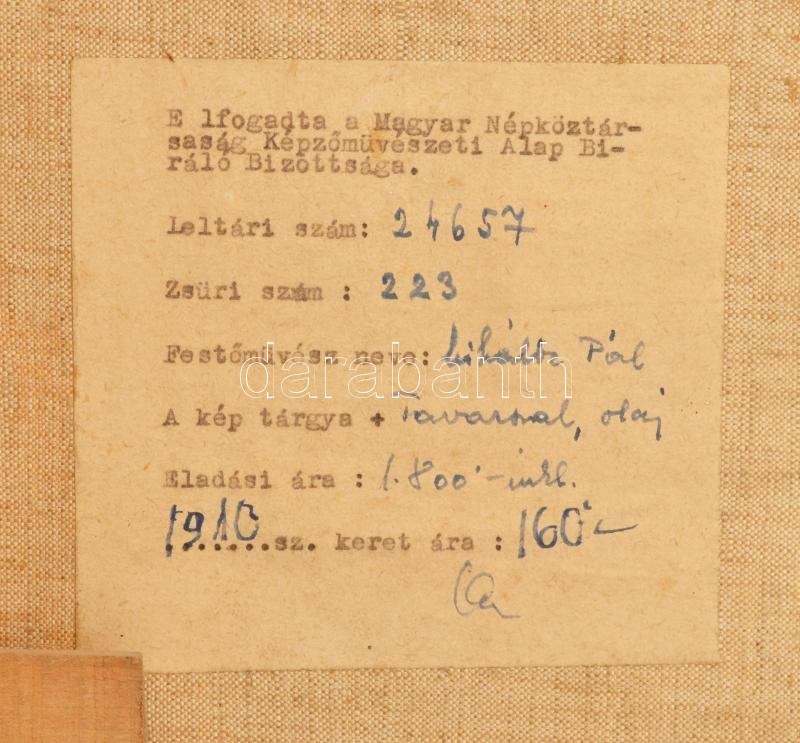 E lfogadta a Magyar Népköztár-
saság Képzőművészeti Alap Bi-
ráló Bizottsága.
Leltári szám: 24657
Zsüri szám : 223
Festőművész neve: Pál
A kép tárgya + Tavasszal, olaj
Eladási ára : 1.800'-inkl.
1910.......sz. keret ára : 160'-
darabanth